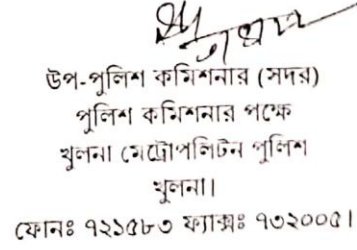 উপ-পুলিশ কমিশনার (সদর)
পুলিশ কমিশনার পক্ষে
খুলনা মেট্রোপলিটন পুলিশ
খুলনা।
ফোনঃ ৭২১৫৮৩ ফ্যাক্সঃ ৭৩২০০৫।